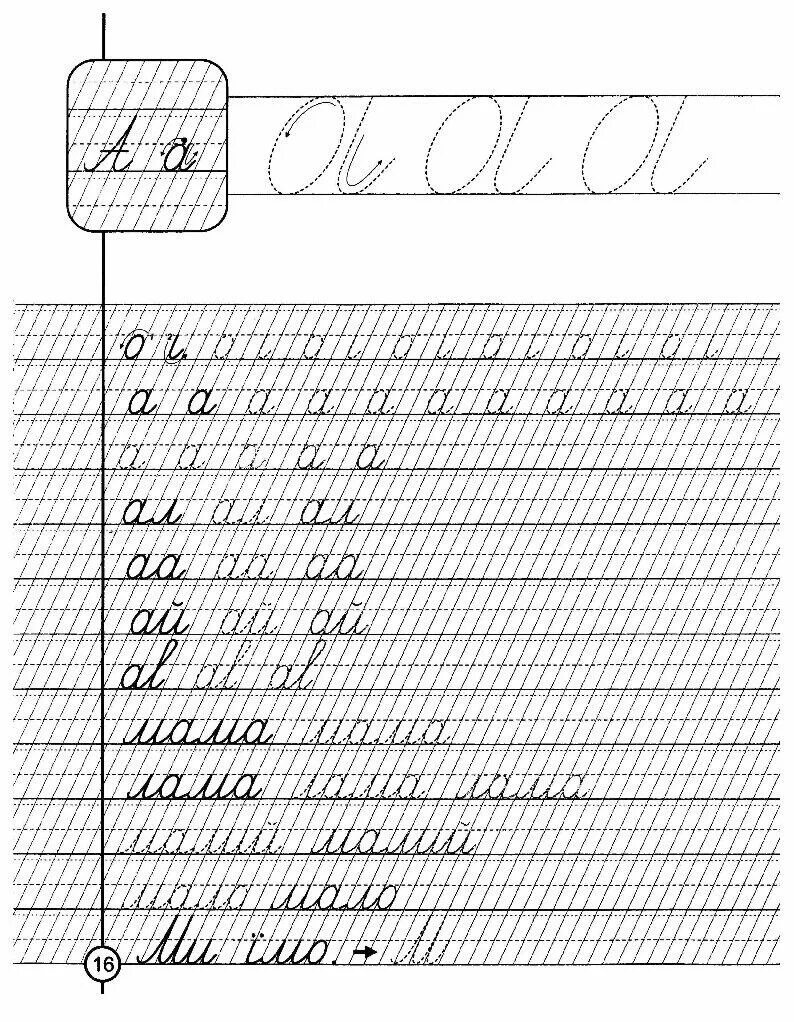 А а а а а
о ı о ı о ı о ı о ı о ı о ı
а а а а а а а а а а а
а а а а а
ал ал ал
аа аа аа
ай ай ай
аl аl аl
мама мама
лама лама лама
малий малий
мало мало
Ми їмо. → М
16